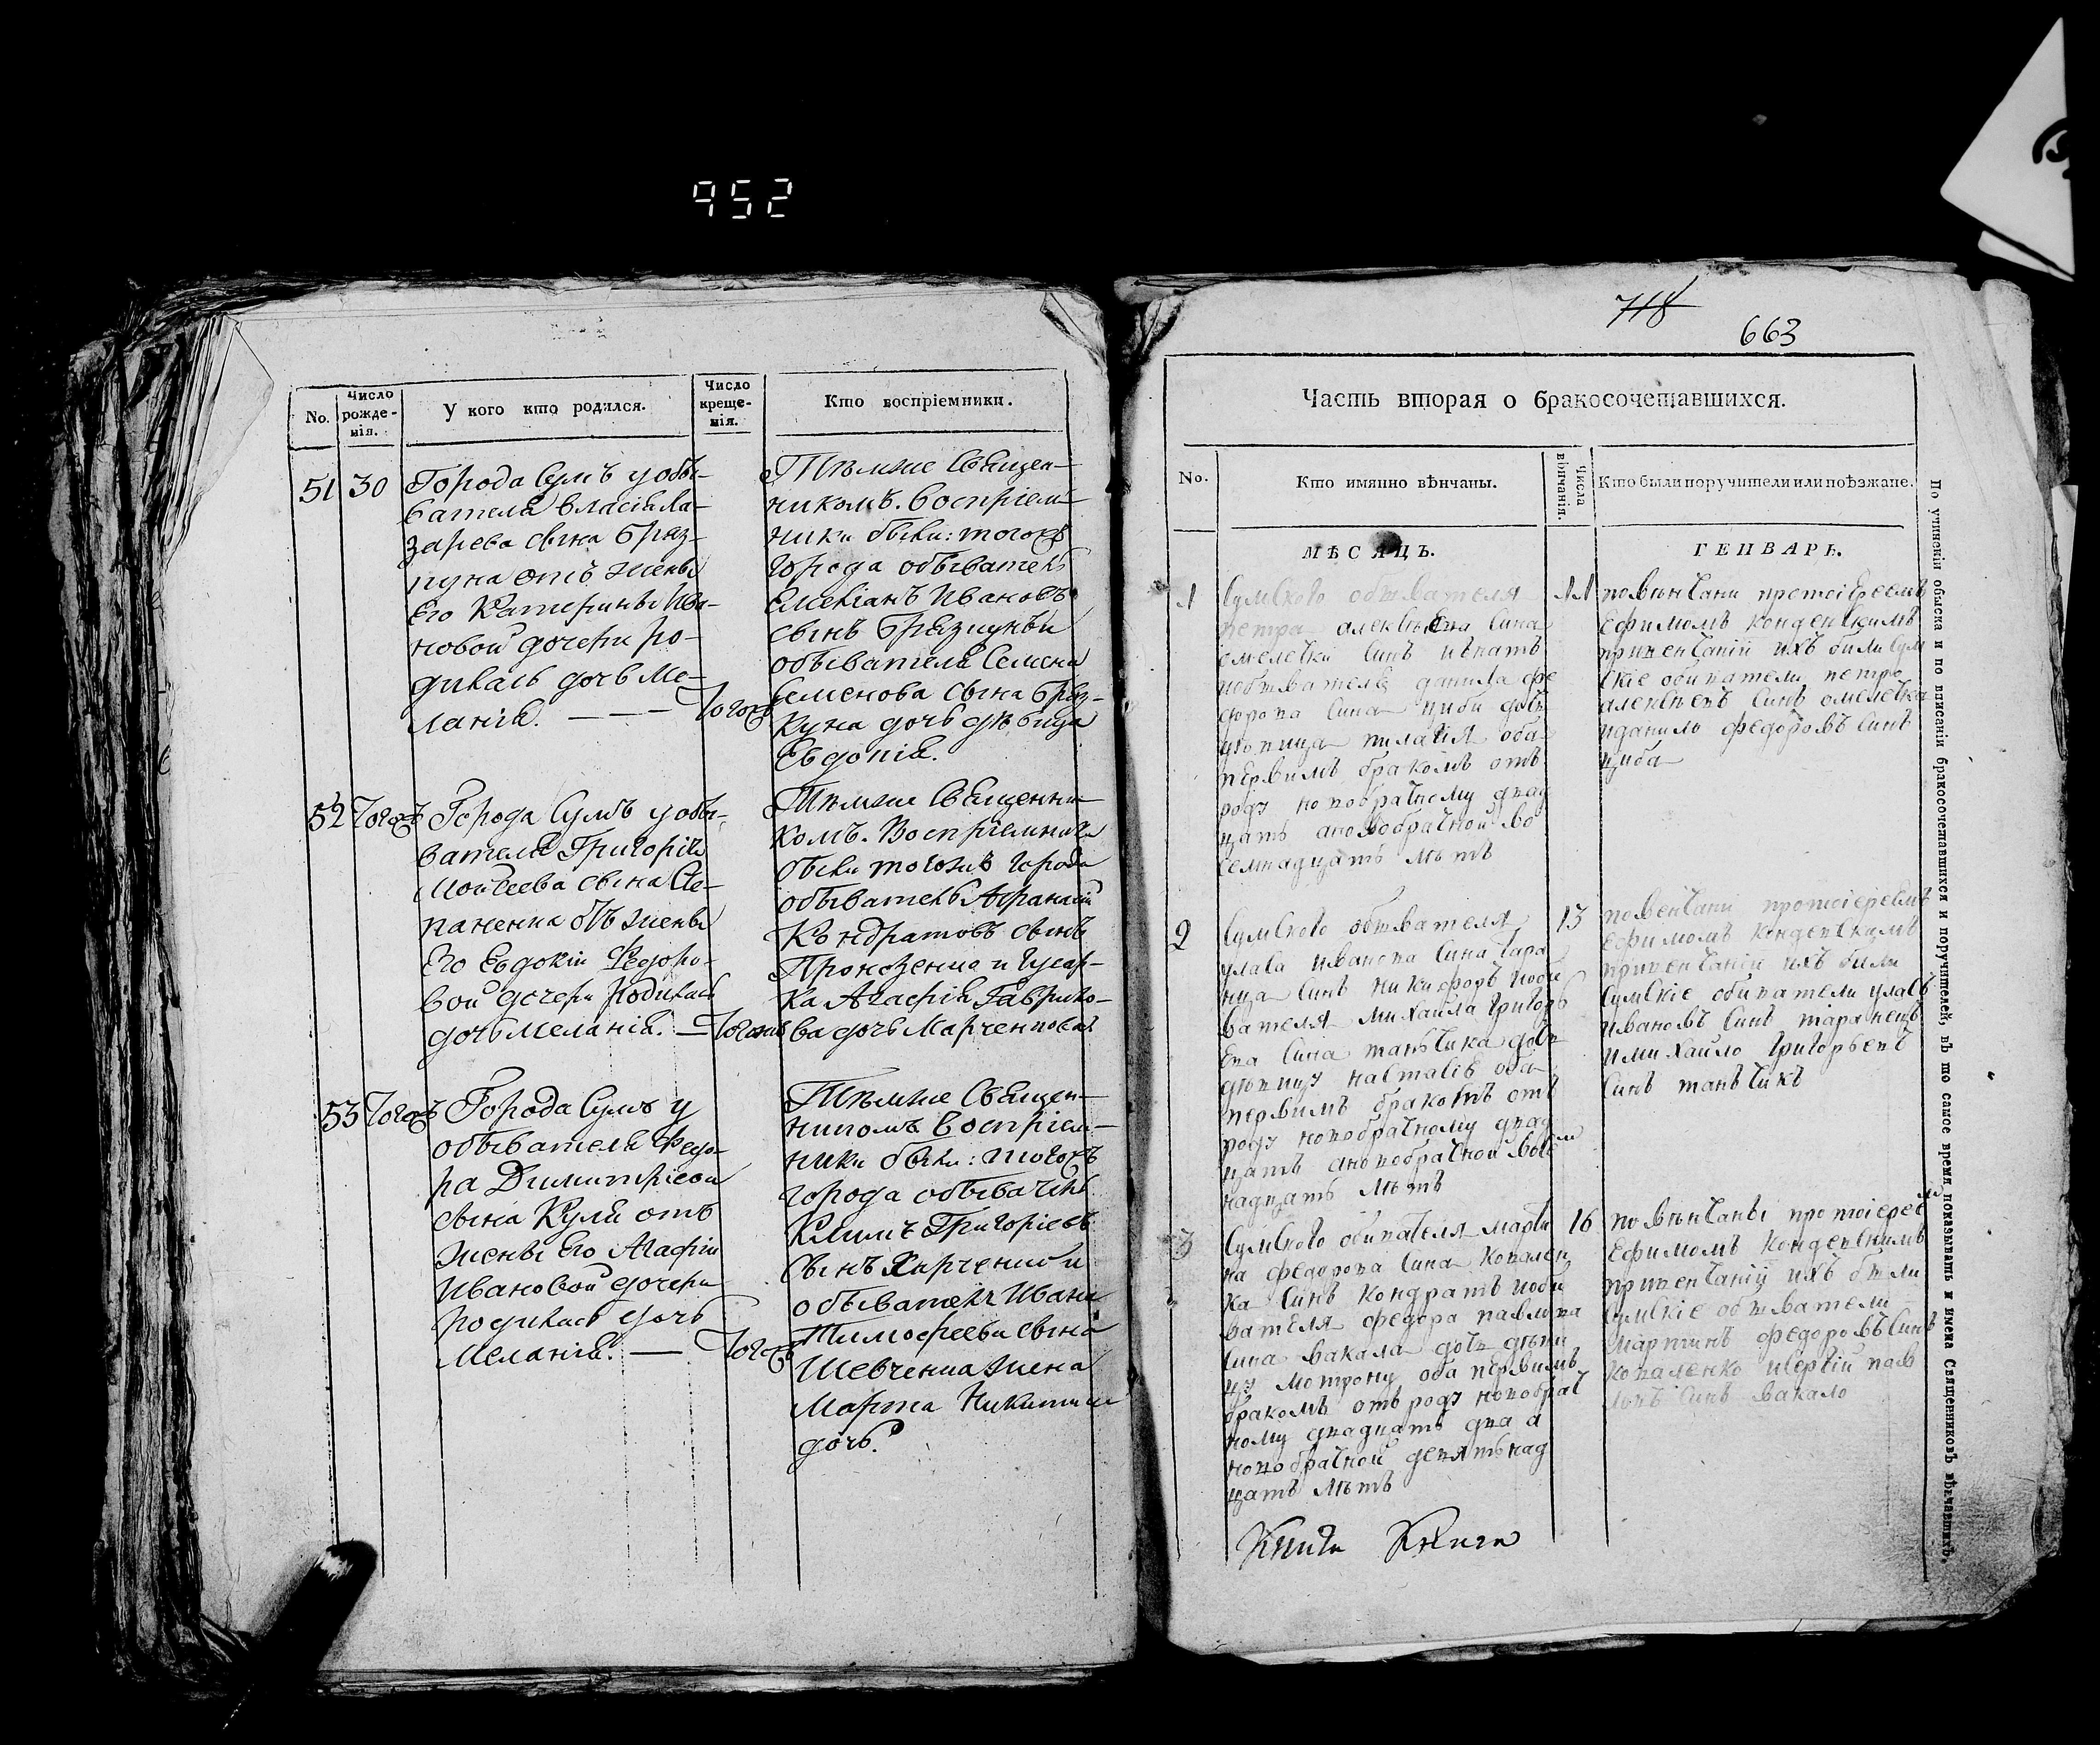 952
No.
Число рожде-нія.
У кого кто родился.
Число креще-нія.
Кто воспріемники.
51
30
Города Сумъ у обы-
вателя Власія Ла-
зарева сына Бряз-
куна отъ жены
Его Катерины Ива-
новой дочери ро-
дилась дочь Ме-
ланія. — — — Тогожъ
Тѣмже Священ-
никомъ. воспріем-
ники были: тогожъ
города обыватель
Емеліанъ Ивановъ
сынъ Брязкунъ и
обывателя Семена
Семенова сына Бряз-
куна дочь дѣвица
Евдокія.
52
Тогожъ
Города Сумъ у обы-
вателя Григорія
Моисеева сына Сте-
паненка отъ жены
Его Евдокіи Федоро-
вой дочери родилась
дочь Меланія. — Тогожъ
Тѣмже Священни-
комъ. Воспріемники
были тогожъ города
обыватель Афанасій
Кондратовъ сынъ
и Гусар-
ка Агафія Гаврило-
ва дочь Марченкова.
53
Тогожъ
Города Сумъ у
обывателя Федо-
ра Димитріева
сына Кули отъ
жены Его Агафіи
Ивановой дочери
родилась дочь
Меланія. — Тогожъ
Тѣмже Священ-
никомъ Воспріем-
ники были: тогожъ
города обыватель
Климъ Григоріевъ
сынъ и
обывателя Ивана
Тимофеева сына
Шевченка жена
Марта Никитина
дочь.
718
663
Часть вторая о бракосочетавшихся.
No.
Кто имянно вѣнчаны.
Числа вѣнчанія.
Кто были поручители или поѣзжане.
МѢСЯЦЪ.
ГЕНВАРЬ.
1
Сумского обывателя
Петра алексѣева сина
емелечки синъ игнатъ
иобывателя данила фе
дорова сина циби доче
дювица пилагія оба
первимъ бракомъ отъ
роду новобрачному двад
цать ановобрачной во
семнадцать лѣтъ
11
повѣнчани протоіереемъ
ефимомъ конденскимъ
привенчаніи ихъ били сум
скіе обиватели петро
алексѣевъ синъ омелечка
иданило федоровъ синъ
циба
2
Сумского обывателя
уласа иванова сина тара
нца синъ никифоръ иоби
вателя михаила григорь
ева сина танъчика доче
дювицу настасіе оба
первимъ бракомъ отъ
роду новобрачному двад
цать ановобрачной восем
надцать лѣтъ
13
повѣнчани протоіереемъ
ефимомъ конденскимъ
привенчаніи ихъ били
сумскіе обиватели уласъ
ивановъ синъ таранецъ
имихайло григорьевъ
синъ танъчикъ
3
Сумского обивателя марти
на федорова сина ковален
ка синъ кондратъ иоби
вателя федора павлова
сина вакала доче дѣви
цу мотрону оба первимъ
бракомъ отъ роду новобрач
ному двадцать два а
новобрачной девятьнад
цать лѣтъ
16
повѣнчаны протоіереемъ
Ефимомъ конденскимъ
привенчаніи ихъ были
сумскіе обыватели
мартинъ федоровъ синъ
коваленко исергій пав
ловъ синъ вакало
Книга Книга
По учиненіи обыска и по вписаніи бракосочетавшихся и поручителей, въ то самое время показывать и имена Священниковъ вѣнчавшихъ.